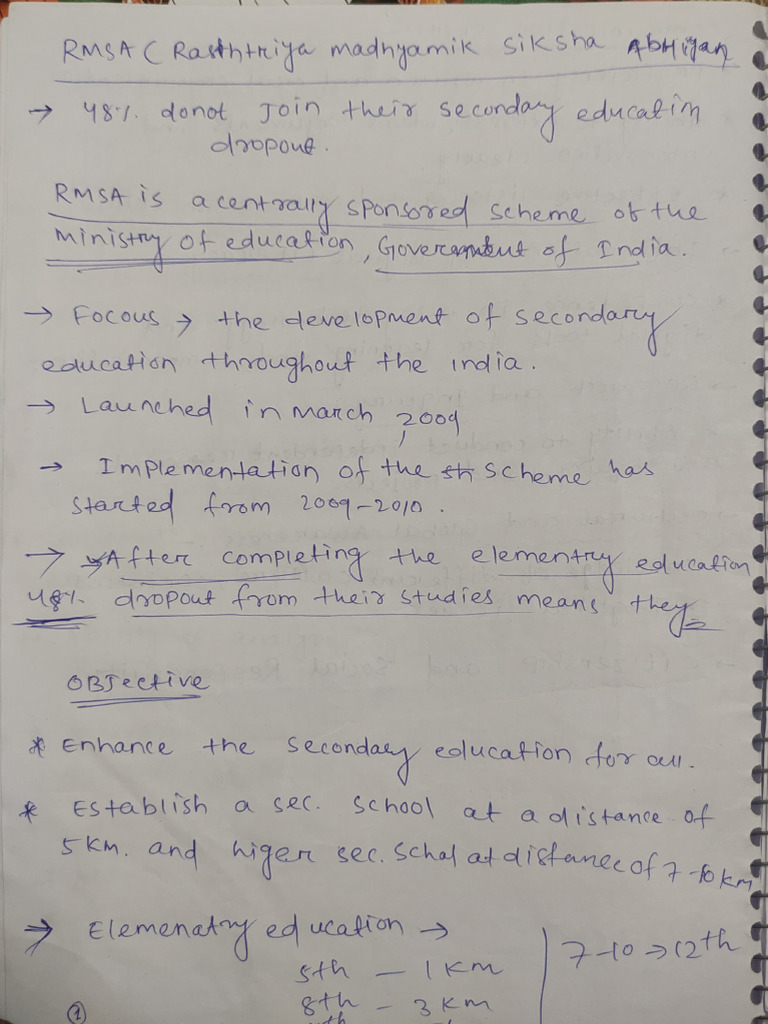 RMSA ( Rasthtriya madhyamik siksha Abhiyan
→ 48%. donot Join their secondary education
dropout.
RMSA is a centrally sponsored scheme of the
Ministry of education, Government of India.
→ Focous → the development of secondary
education throughout the india.
→ Launched in march 2009
→ Implementation of the scheme has
started from 2009-2010.
→ After completing the elementry education
48% dropout from their studies means they
OBJective
* Enhance the secondary education for all.
* Establish a sec. school at a distance of
5 km. and higer sec. Schol at distance of 7-10 km
→ Elemenatry education →
5th - 1 km
7-10 → 12th
8th - 3 km
1